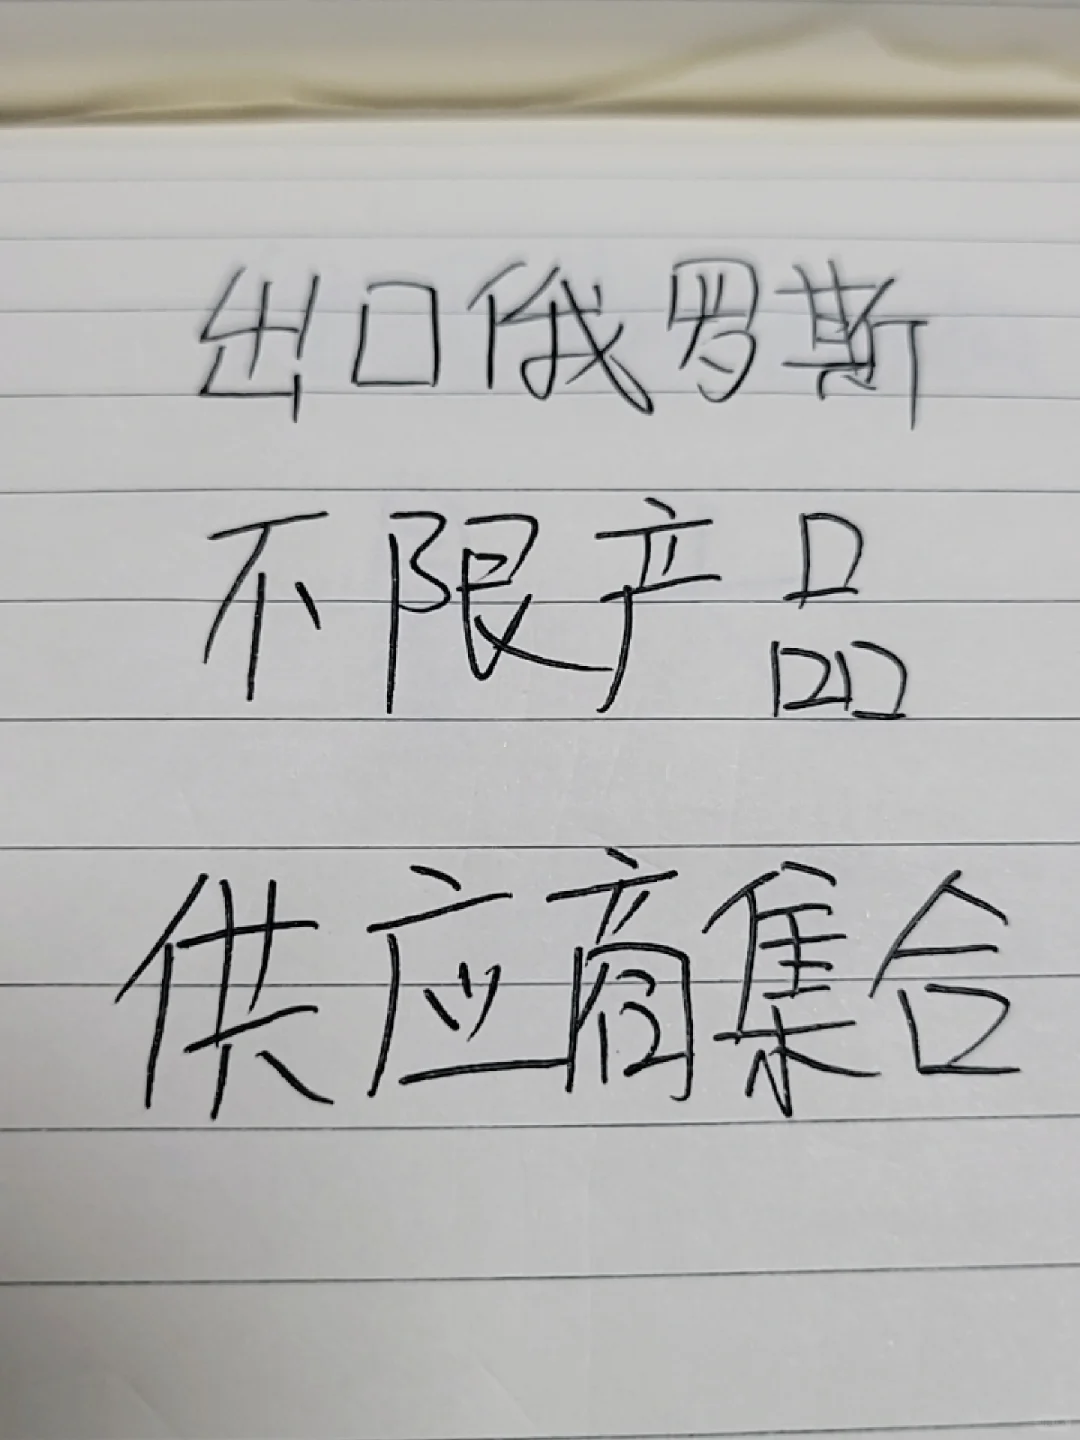 出口俄罗斯
不限产品
供应商集合